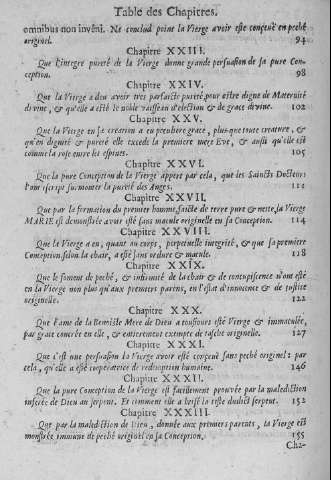 Table des Chapitres.
omnibus non invêni. Ne conclud point la Vierge avoir esté conçeuë en peché
originel. 94
Chapitre XXIII.
Que l'integre pureté de la Vierge donne grande persuasion de sa pure Con-
ception. 98
Chapitre XXIV.
Que la Vierge a deu avoir tres parfaicte pureté pour estre digne de Maternité
divine, & qu'elle a esté le noble vaisseau d'election & de grace divine. 102
Chapitre XXV.
Que la Vierge en sa creation a eu premiere grace, plus que toute creature, &
qu'en dignité & pureté elle excede la premiere mere Eve, & aussi qu'elle est
comme la rose entre les espines. 105
Chapitre XXVI.
Que la pure Conception de la Vierge appert par cela, que les Saincts Docteurs
l'ont escript surmonter la pureté des Anges. 111
Chapitre XXVII.
Que par la formation du premier homme, faicte de terre pure & nette, la Vierge
MARIE est demonstrée avoir esté sans macule originelle en sa Conception. 114
Chapitre XXVIII.
Que la Vierge a eu, quant au corps, perpetuelle integrité, & que sa premiere
Conception, selon la chair, a esté sans ordure & macule. 118
Chapitre XXIX.
Que le foment de peché, & infirmité de la chair & de concupiscence n'ont esté
en la Vierge non plus qu'aux premiers parens, en l'estat d'innocence & de justice
originelle. 122
Chapitre XXX.
Que l'ame de la Benoiste Mere de Dieu a tousjours esté Vierge & immaculée,
par grace concrée en elle, & entierement exempte de tasche originelle. 127
Chapitre XXXI.
Que c'est une persuasion la Vierge avoir esté conçeuë sans peché originel: par
cela, qu'elle a esté cooperatrice de redemption humaine. 146
Chapitre XXXII.
Que la pure Conception de la Vierge est facilement prouvée par la malediction
inferée de Dieu au serpent. Et comment elle a brisé la teste dudict serpent. 152
Chapitre XXXIII.
Que par la malediction de Dieu, donnée aux premiers parents, la Vierge est
monstrée immune de peché originel en sa Conception. 155
Cha-